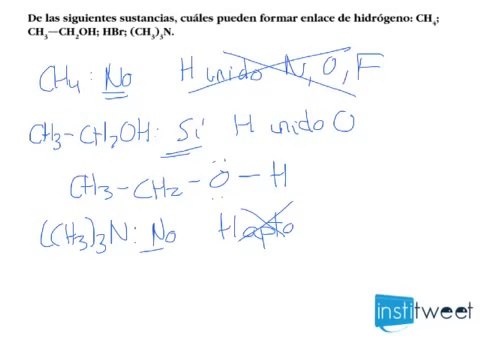 De las siguientes sustancias, cuáles pueden formar enlace de hidrógeno: CH₄;
CH₃—CH₂OH; HBr; (CH₃)₃N.
CH₄: No H unido N, O, F
CH₃-CH₂OH: Sí H unido O
CH₃-CH₂-O-H
(CH₃)₃N: No H apto
institweet